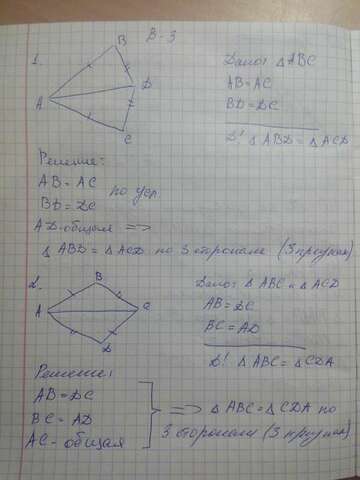 В-3
1.
B
A
D
C
Дано: △ABC
AB=AC
BD=DC
Д! △ABD=△ACD
Решение:
AB=AC
BD=DC
по усл.
AD-общая =>
△ABD=△ACD по 3 сторонам (3 признак)
2.
B
A
C
D
Дано: △ABC и △ACD
AB=DC
BC=AD
Д! △ABC=△CDA
Решение:
AB=DC
BC=AD
AC-общая
=> △ABC=△CDA по
3 сторонам (3 признак)